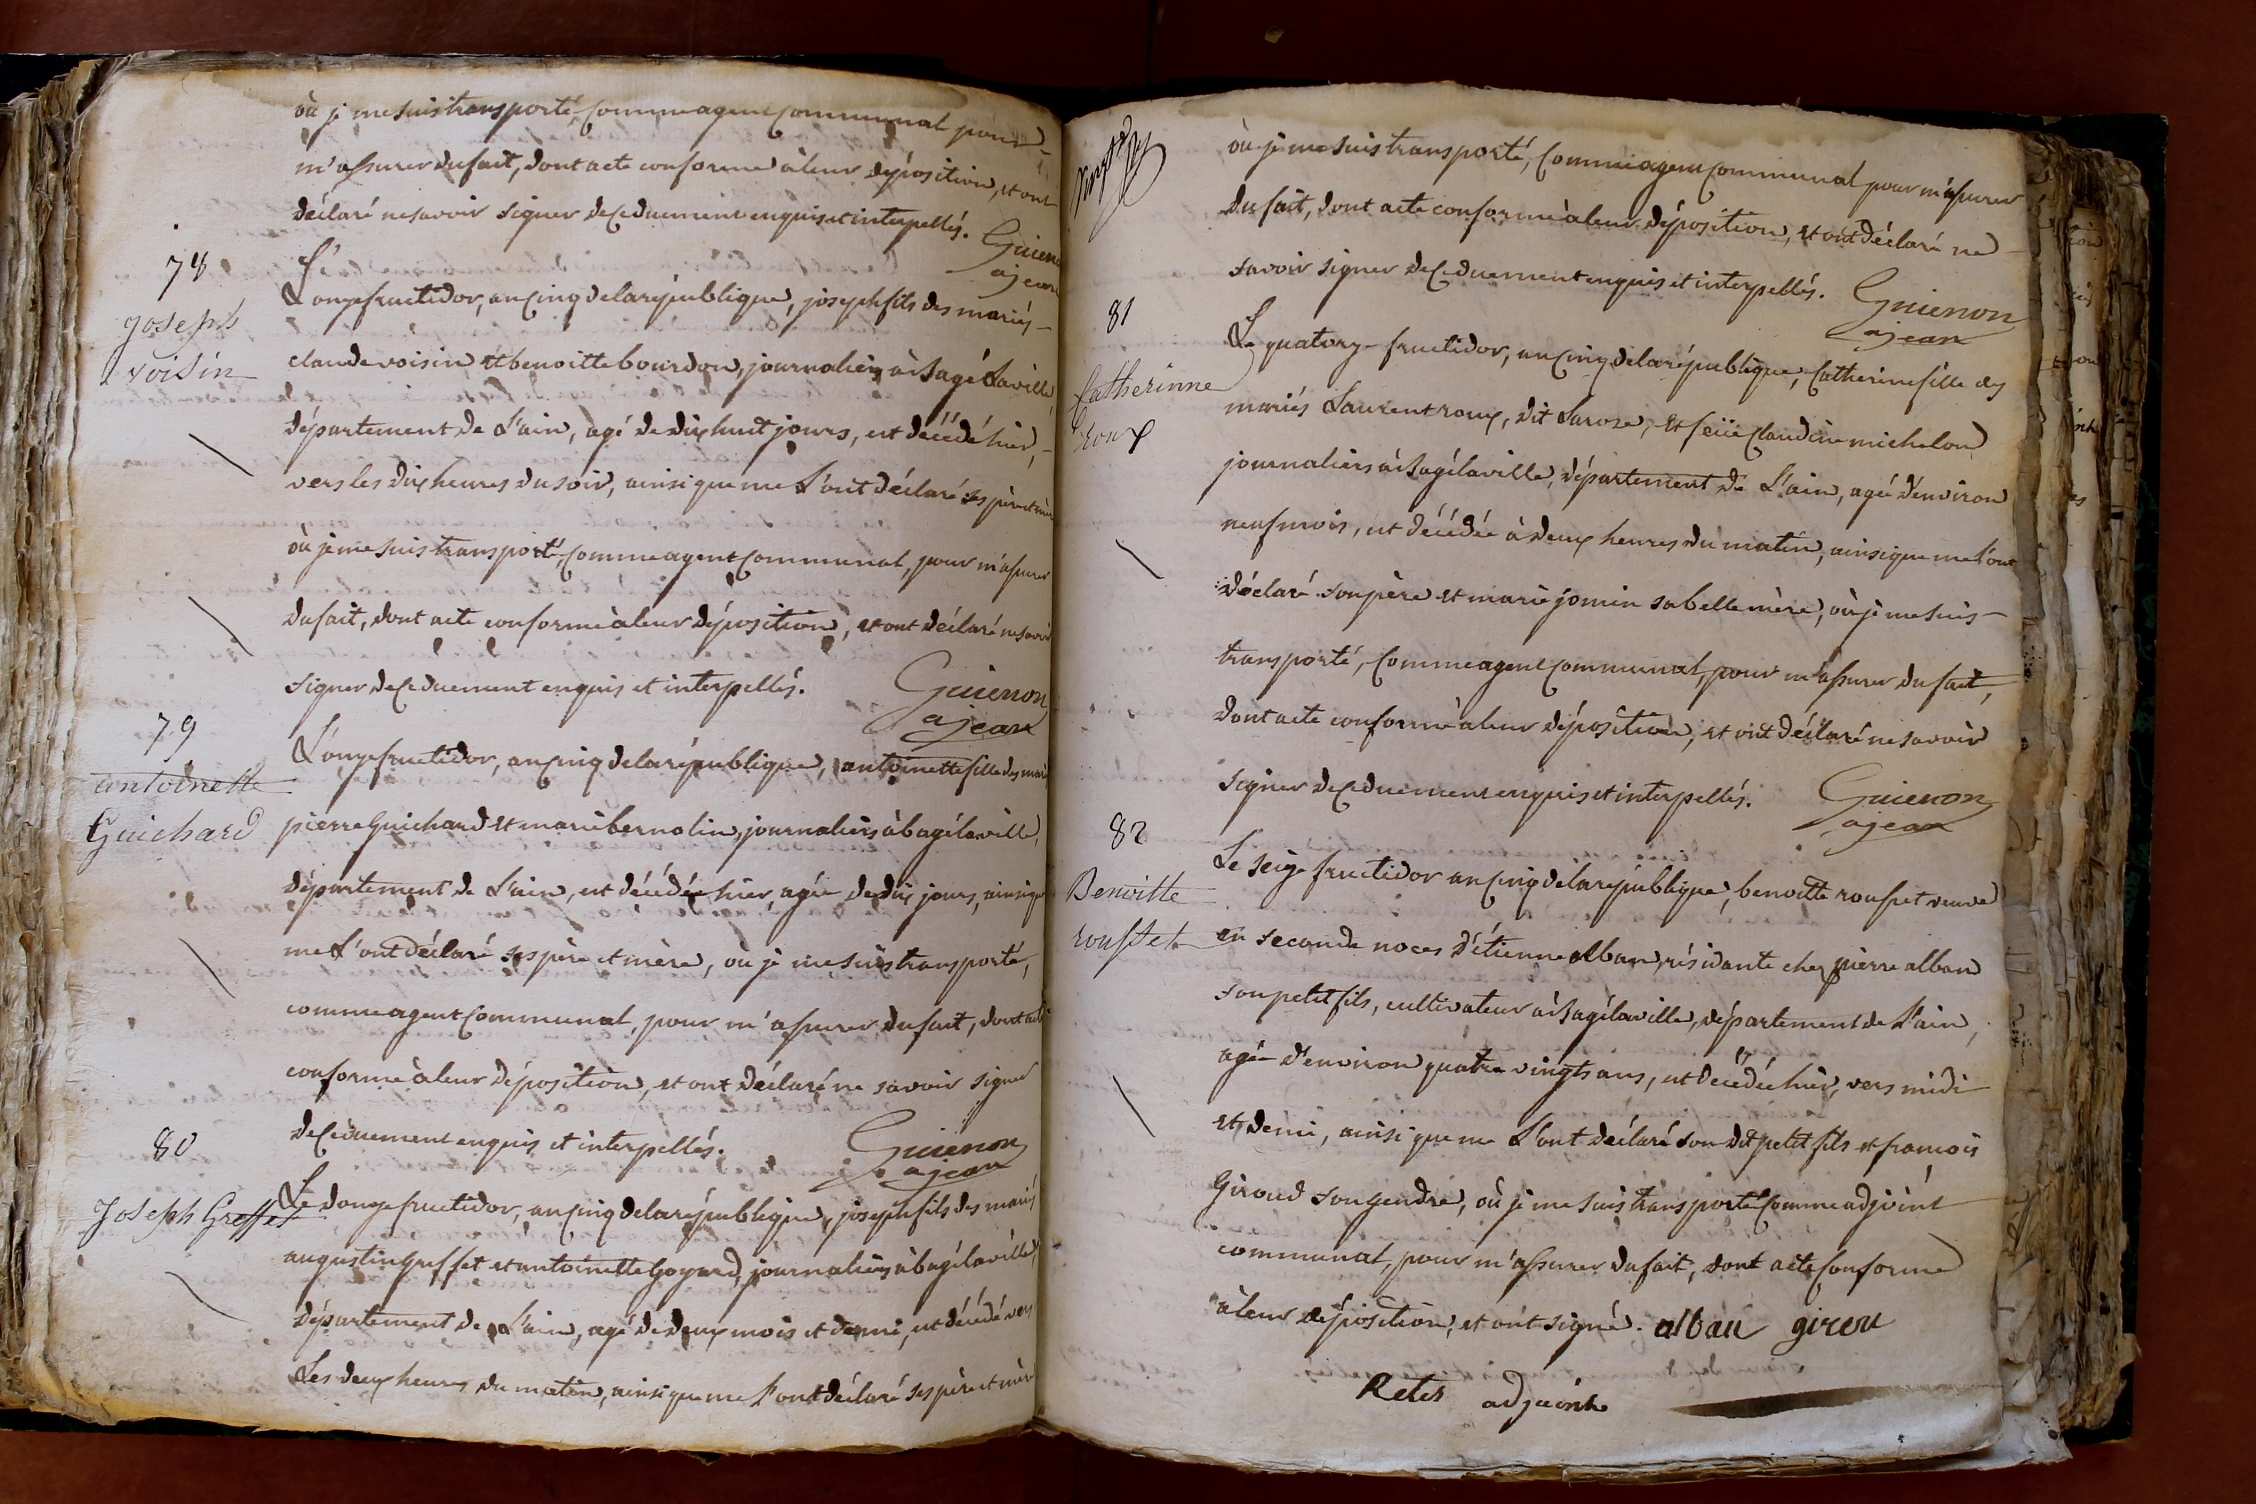 où je me suis transporté, comme agent communal pour
m'assurer du fait, dont acte conforme à leur déposition, et ont
déclaré ne savoir signer de ce duement enquis et interpellés.
Guienon
ajean
78
joseph
voisin
L'onze fructidor, an cinq de la république, joseph fils des mariés
claude voisin et benoitte bourdon, journaliers à Bagé la ville,
département de L'ain, agé de dix huit jours, est décédé hier,
vers les dix heures du soir, ainsi que me L'ont déclaré ses père et mère
où je me suis transporté, comme agent communal, pour m'assurer
du fait, dont acte conforme à leur déposition, et ont déclaré ne savoir
signer de ce duement enquis et interpellés.
Guienon
ajean
79
antoinette
Guichard
L'onze fructidor, an cinq de la république, antoinette fille des mariés
pierre Guichard et marie bernolin, journaliers à bagé la ville,
département de L'ain, est décédée hier, agée de dix jours, ainsi que
me L'ont déclaré ses père et mère, où je me suis transporté,
comme agent communal, pour m'assurer du fait, dont acte
conforme à leur déposition, et ont déclaré ne savoir signer
de ce duement enquis et interpellés.
Guienon
ajean
80
Joseph Greffet
Le douze fructidor, an cinq de la république, joseph fils des mariés
augustin Greffet et antoinette Goyard, journaliers à bagé la ville,
département de L'ain, agé de deux mois et demi, est décédé vers
Les deux heures du matin, ainsi que me L'ont déclaré ses père et mère
où je me suis transporté, comme agent communal pour m'assurer
du fait, dont acte conforme à leur déposition, et ont déclaré ne
savoir signer de ce duement enquis et interpellés.
Guienon
ajean
81
Catherinne
roux
Le quatorze fructidor, an cinq de la république, Catherine fille des
mariés Laurent roux, dit Larose, et feüe Claudine michelon
journaliers à Bagé la ville, département de L'ain, agée d'environ
neuf mois, est décédée à deux heures du matin, ainsi que me l'ont
déclaré son père et marie jomin sa belle mère, où je me suis
transporté, comme agent communal, pour m'assurer du fait,
dont acte conforme à leur déposition, et ont déclaré ne savoir
signer de ce duement enquis et interpellés.
Guienon
ajean
82
Benoitte
rousset
Le seize fructidor an cinq de la république, benoitte rousset veuve
en seconde noces d'étienne alban, résidante chez pierre alban
son petit fils, cultivateur à Bagé la ville, département de L'ain,
agée d'environ quatre vingts ans, est décédée hier, vers midi
et demi, ainsi que me L'ont déclaré son dit petit fils et francois
Giroud son gendre, où je me suis transporté comme adjoint
communal, pour m'assurer du fait, dont acte conforme
à leur déposition, et ont signé. alban girou
adjoint